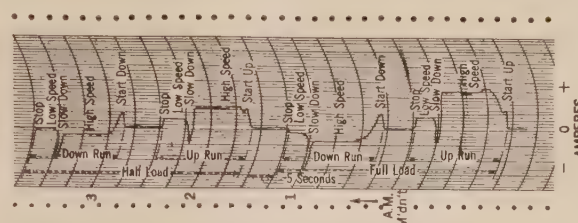 Stop
Low Speed
Slow Down
High Speed
Start Down
Stop
Low Speed
Slow Down
High Speed
Start Up
Stop
Low Speed
Slow Down
High Speed
Start Down
Stop
Low Speed
Slow Down
High
Speed
Start Up
Down Run
Up Run
Down Run
Up Run
Half Load
5 Seconds
Full Load
3
2
1
A.M.
Midn't
- 0 +
AMPERES